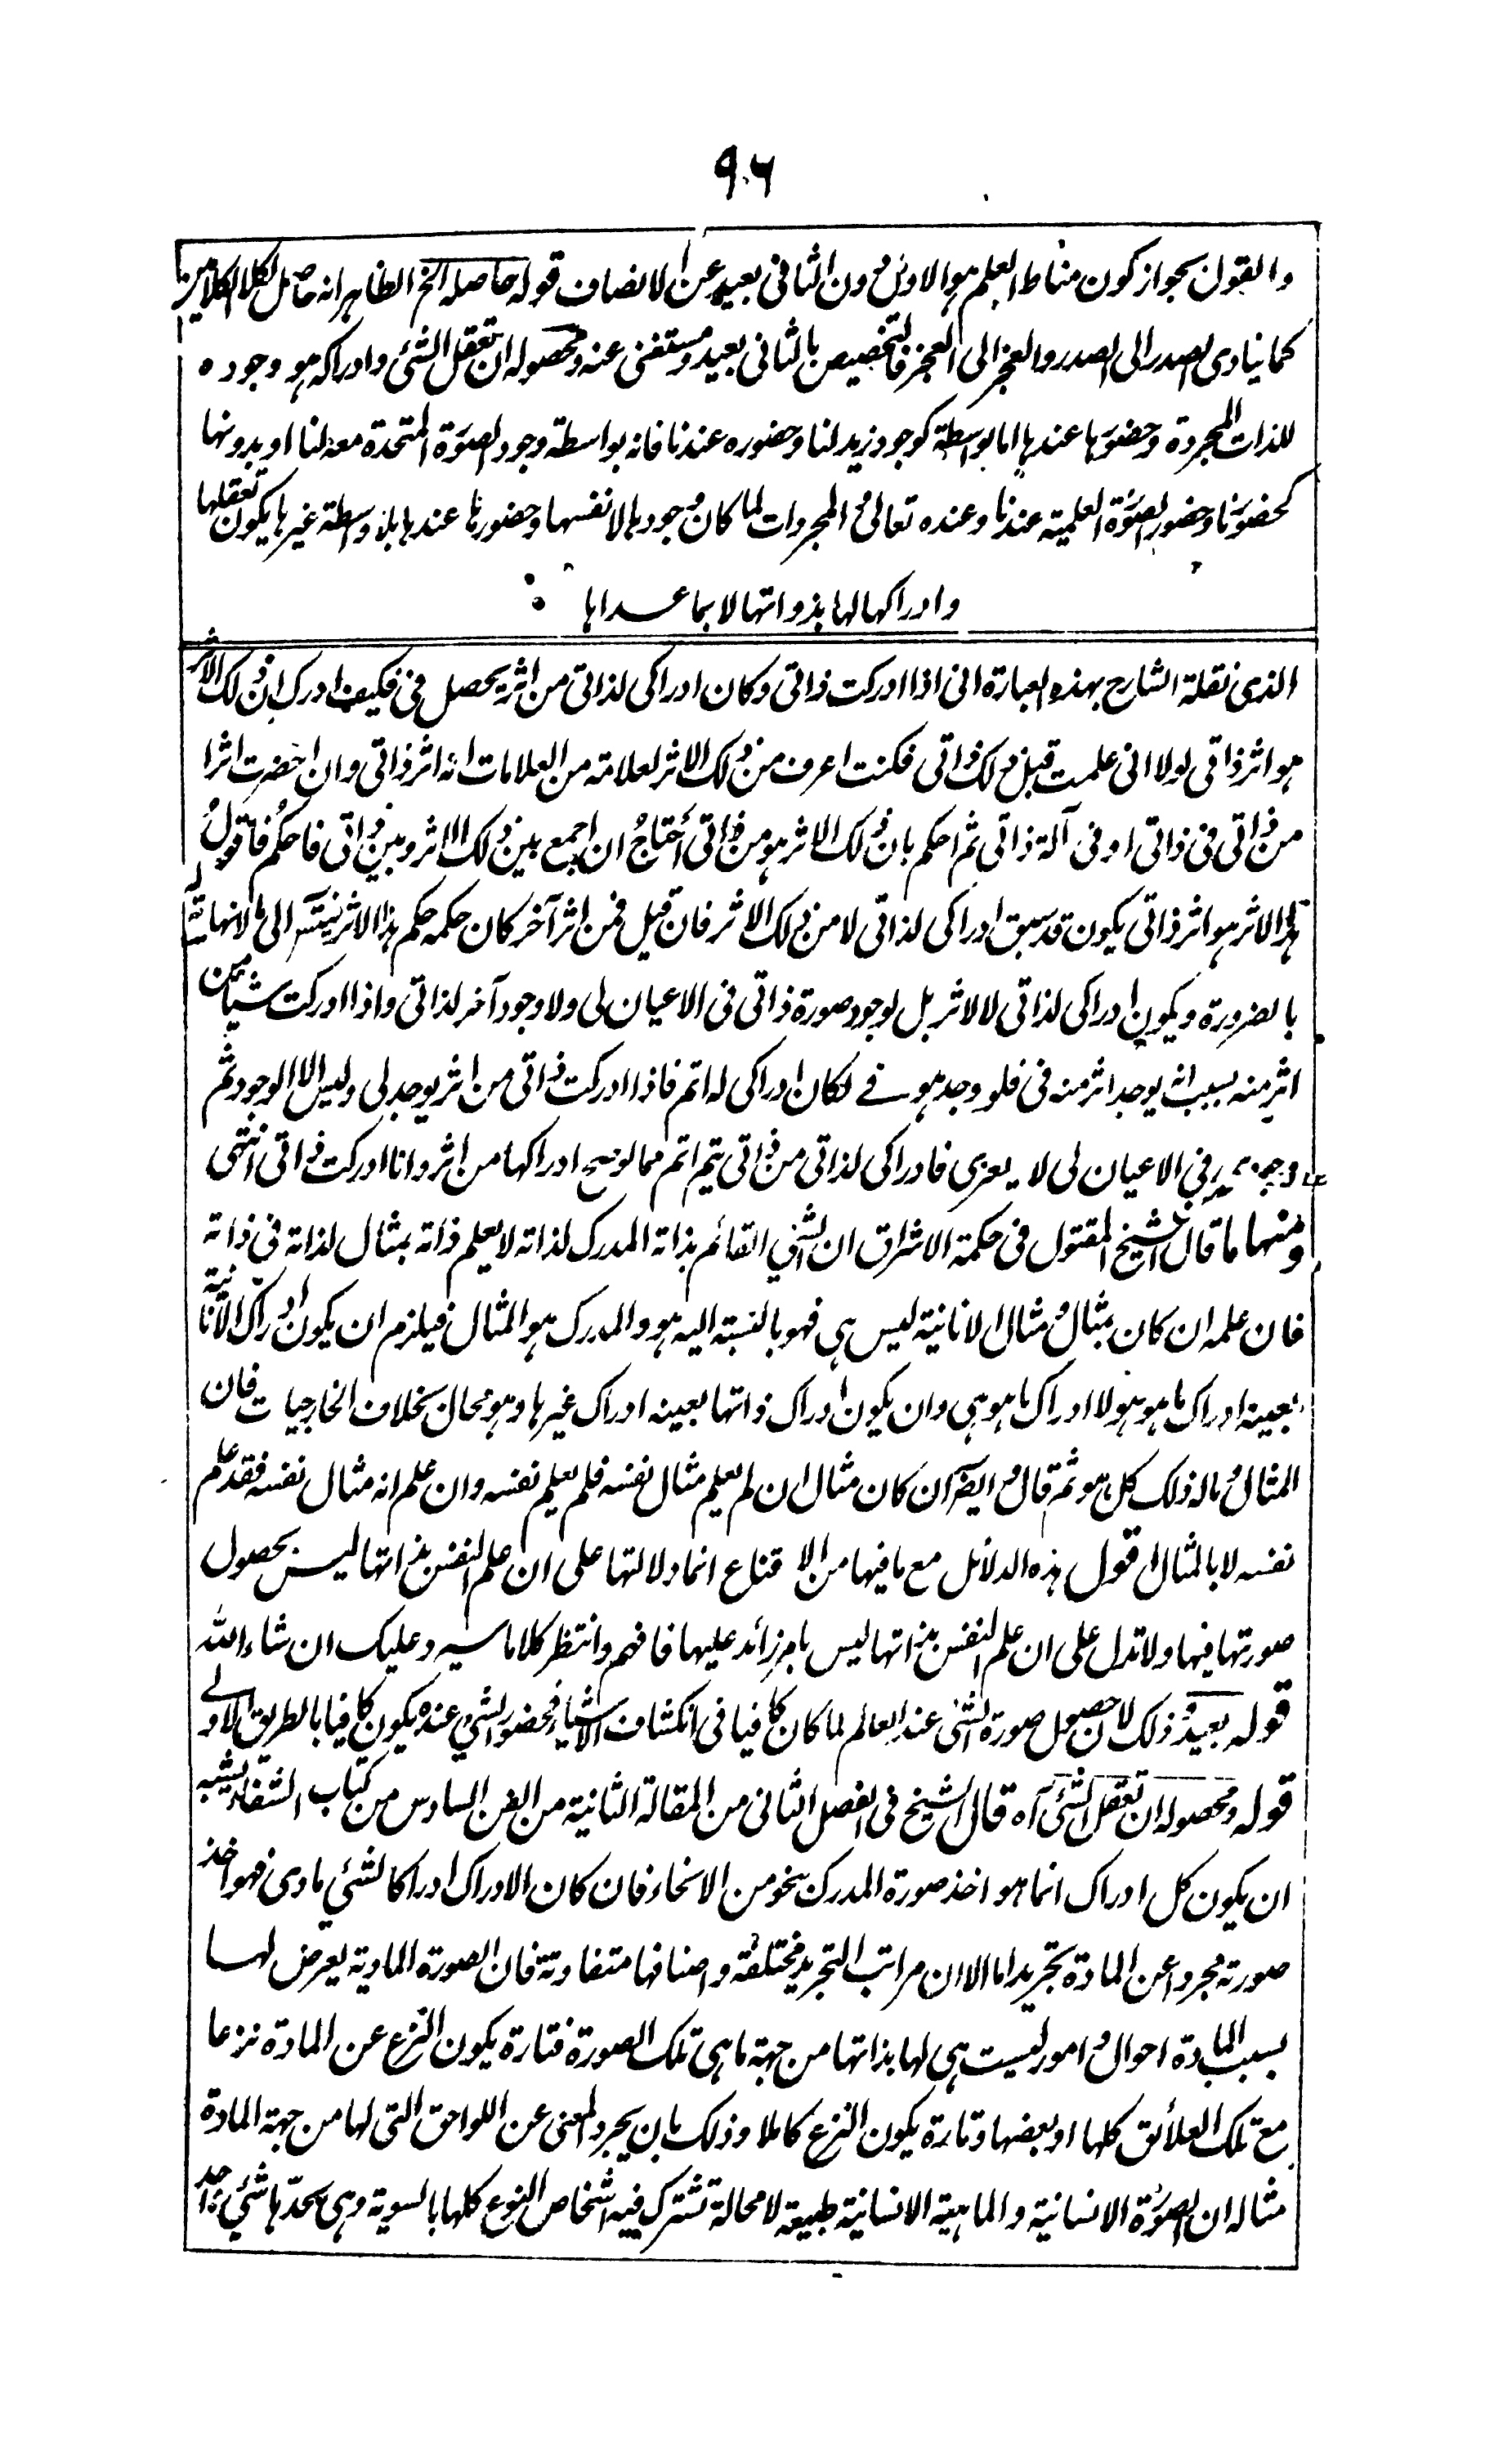 ٩٦
والقول بجواز كون مناط العلم هو الاول دون الثاني بعيد عن الانصاف قوله حاصله الخ الظاهر انه حاصل لكلا الكلامين
كما ينادي الصدر الى الصدر والعجز الى العجز فالتخصيص بالثاني بعيد ومستغنى عنه ومحصوله ان تعقل الشئ وادراكه هو وجوده
للذات المجردة وحضورها عندها اما بواسطة كوجود زيد لنا وحضوره عندنا فانه بواسطة وجود الصورة المتحدة معه لنا او بدونها
كحضورنا وحضور الصورة العلمية عندنا وعنده تعالى والمجردات لما كان وجودها لانفسها وحضورها عندها بلا واسطة غيرها يكون تعقلها
وادراكها لها بذواتها لا بما عداها
الذي نقله الشارح بهذه العبارة اني اذا ادركت ذاتي وكان ادراكي لذاتي من اثر يحصل في فكيف ادرك ان ذلك الاثر
هو اثر ذاتي لولا اني علمت قبل ذلك ذاتي فكنت اعرف من ذلك الاثر لعلامة من العلامات انه اثر ذاتي وان احضرت اثرا
من ذاتي في ذاتي او في آلة ذاتي ثم احكم بان ذلك الاثر هو من ذاتي أحتاج ان اجمع بين ذلك الاثر وبين ذاتي فاحكم فاقول
هذا الاثر هو اثر ذاتي يكون قد سبق ادراكي لذاتي لا من ذلك الاثر فان قيل فمن اثر آخر كان حكمه حكم هذا الاثر فيتسلسل الى ما لا نهاية
بالضرورة ويكون ادراكي لذاتي لا لاثر بل لوجود صورة ذاتي في الاعيان لي ولا وجود آخر لذاتي واذا ادركت شيئا من
اثر منه بسبب انه يوجد اثر منه في فلو وجد هو في لكان ادراكي له اتم فاذا ادركت ذاتي من اثر يوجد لي وليس الا الوجود ثم
في الاعيان لي لا يعزى فادراكي لذاتي من ذاتي يتم اتم مما لو سح ادراكها من اثر وانا ادركت ذاتي انتهى
ومنها ما قال الشيخ المقتول في حكمة الاشراق ان الشئ القائم بذاته المدرك لذاته لا يعلم ذاته بمثال لذاته في ذاته
فان علمه ان كان بمثال ومثال الانانية ليس هي فهو بالنسبة اليه هو والمدرك هو المثال فيلزم ان يكون ادراك الانانية
بعينه ادراك ما هو هو لا ادراك ما هو هي وان يكون ادراك ذواتها بعينه ادراك غيرها وهو محال بخلاف الخارجيات فان
المثال وماله ذلك كل هو ثم قال وايضا ان كان مثال ان لم يعلم مثال نفسه فلم يعلم نفسه وان علم انه مثال نفسه فقد علم
نفسه لا بالمثال اقول هذه الدلائل مع ما فيها من الاقناع انما دلالتها على ان علم النفس بذاتها ليس بحصول
صورتها فيها ولا تدل على ان علم النفس بذاتها ليس بامر زائد عليها فافهم وانتظر كلاما سيرد عليك ان شاء الله
قوله بعيد وذلك لان حصول صورة الشئ عند العالم لما كان كافيا في انكشاف الاشياء فحضور الشئ عنده يكون كافيا بالطريق الاولى
قوله ومحصوله ان تعقل الشئ آه قال الشيخ في الفصل الثاني من المقالة الثانية من الفن السادس من كتاب الشفاء يشبه
ان يكون كل ادراك انما هو اخذ صورة المدرك بنحو من الانحاء فان كان الادراك ادراكا لشئ مادي فهو اخذ
صورته مجردا عن المادة تجريدا ما الا ان مراتب التجريد مختلفة واصنافها متفاوتة فان الصورة المادية يعرض لها
بسبب المادة احوال وامور ليست هي لها بذاتها من جهة ما هي تلك الصورة فتارة يكون النزع عن المادة نزعا
مع تلك العلائق كلها او بعضها وتارة يكون النزع كاملا وذلك بان يجرد المعنى عن اللواحق التي لها من جهة المادة
مثاله ان الصورة الانسانية والماهية الانسانية طبيعة لا محالة تشترك فيه اشخاص النوع كلها بالسوية وهي بحدها شئ واحد